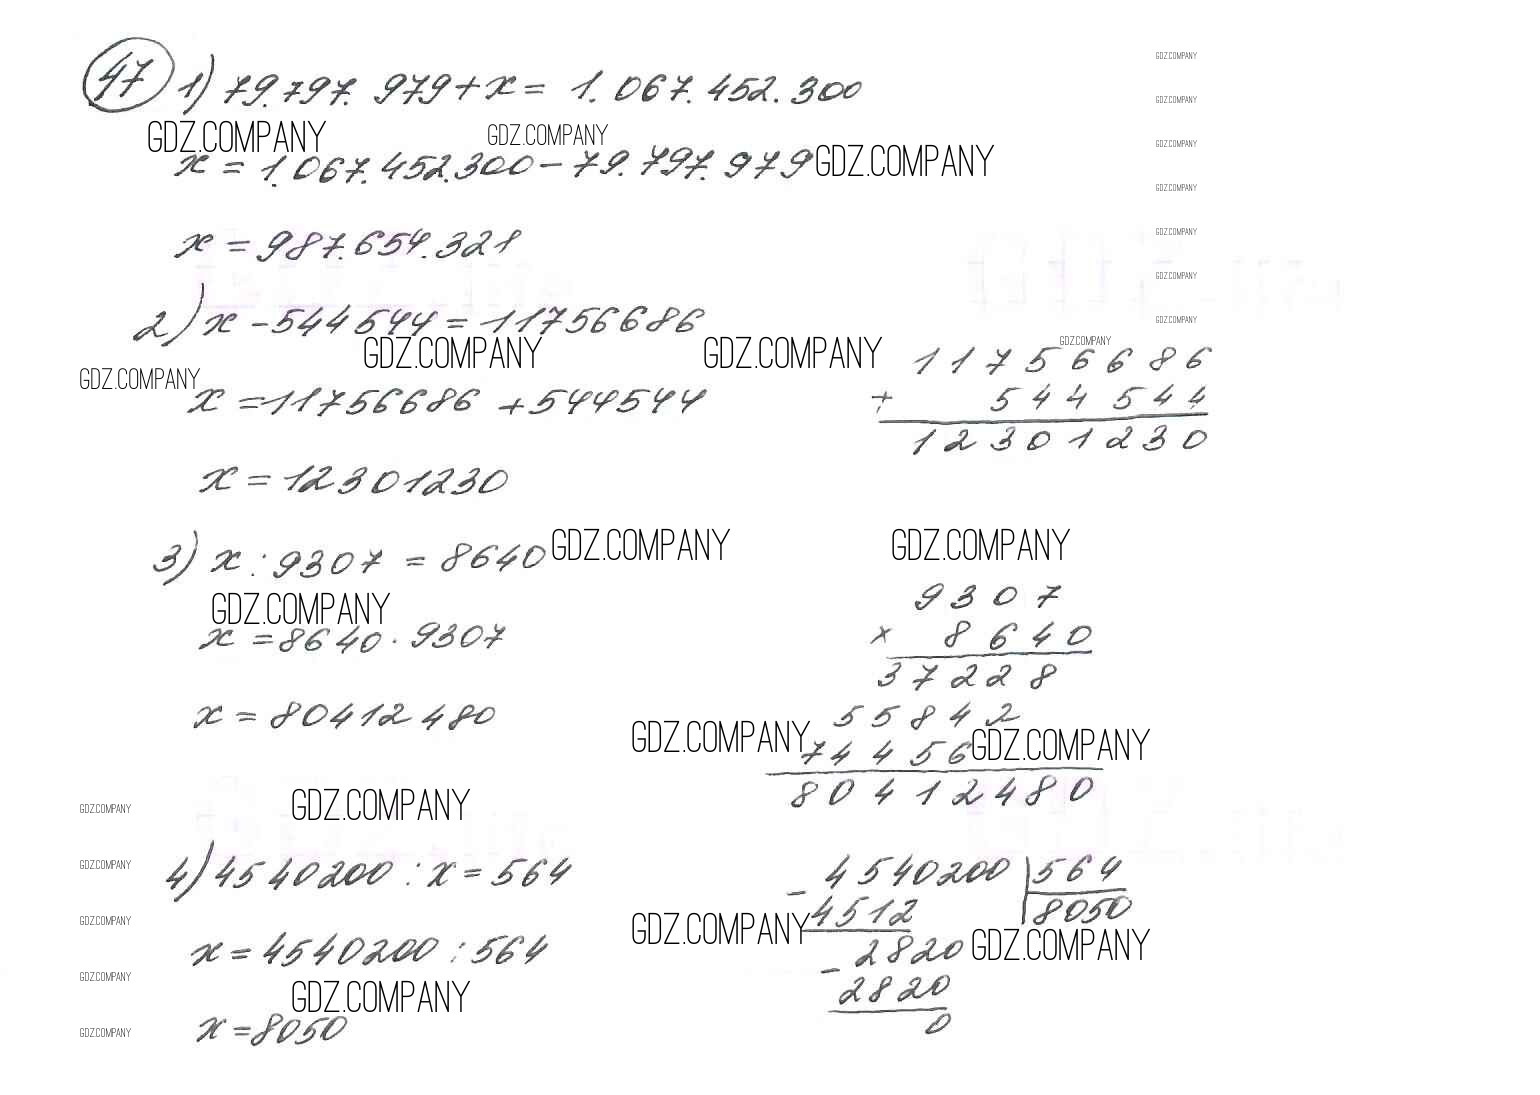 47 1) 79.797.979+x= 1.067.452.300
GDZ.COMPANY GDZ.COMPANY
x = 1.067.452.300 - 79.797.979 GDZ.COMPANY
x = 987.654.321
2) x - 544544 = 11756686
GDZ.COMPANY GDZ.COMPANY GDZ.COMPANY
GDZ.COMPANY
x = 11756686 + 544544
x = 12301230
11756686
+ 544544
12301230
3) x : 9307 = 8640 GDZ.COMPANY GDZ.COMPANY
GDZ.COMPANY
x = 8640 · 9307
x = 80412480
9307
x 8640
37228
55842
GDZ.COMPANY GDZ.COMPANY
74456
80412480
GDZ.COMPANY GDZ.COMPANY
4) 4540200 : x = 564
GDZ.COMPANY
x = 4540200 : 564
GDZ.COMPANY
GDZ.COMPANY
GDZ.COMPANY
x = 8050
GDZ.COMPANY
- 4540200 | 564
4512 8050
GDZ.COMPANY GDZ.COMPANY
- 2820
2820
0
GDZ.COMPANY
GDZ.COMPANY
GDZ.COMPANY
GDZ.COMPANY
GDZ.COMPANY
GDZ.COMPANY
GDZ.COMPANY